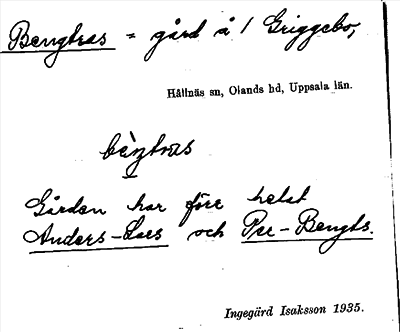 Bengtras = gård å 1 Griggebo,
Hållnäs sn, Olands hd, Uppsala län.
bèŋtras
Gården har före hetat
Anders-Lars och Per-Bengts.
Ingegärd Isaksson 1935.